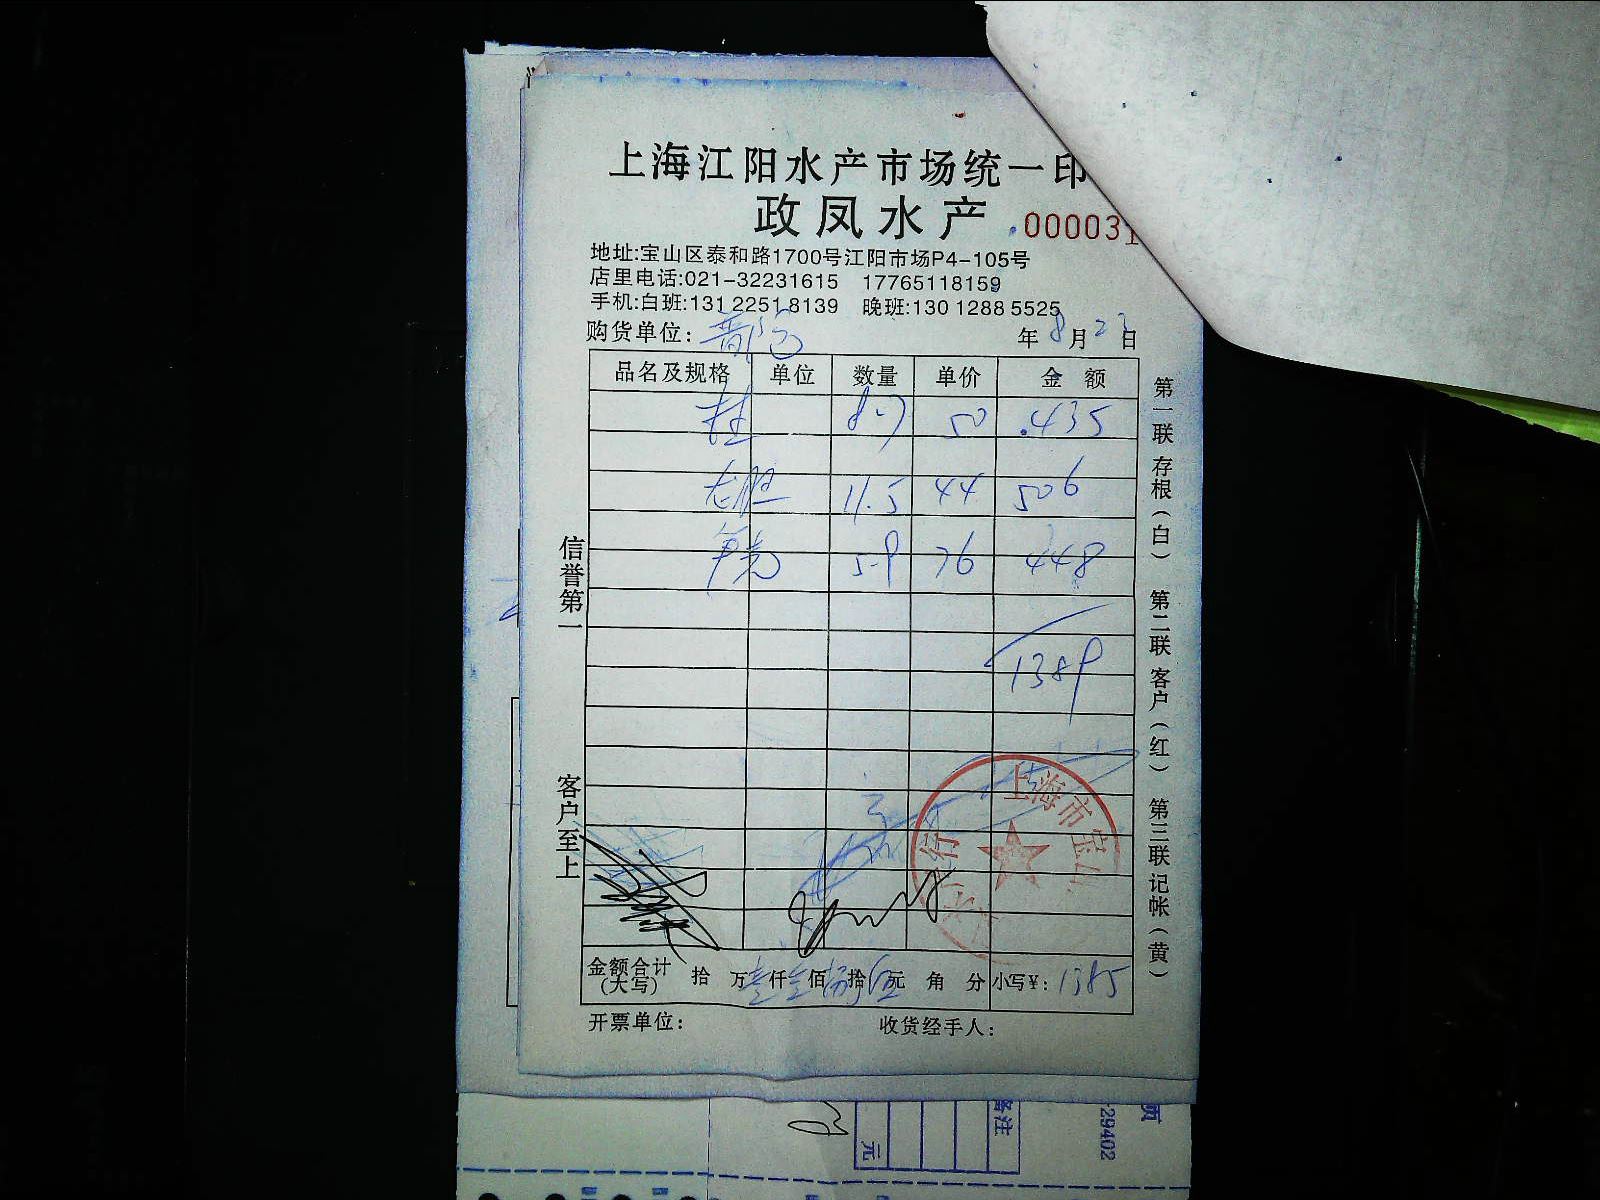 上海江阳水产市场统一印
政凤水产
.000031
地址:宝山区泰和路1700号江阳市场P4-105号
店里电话:021-32231615 17765118159
手机:白班:131 2251 8139 晚班:130 1288 5525
购货单位:
年8月23日
品名及规格 单位 数量 单价 金额
8.7 50 435
龙胆 11.5 44 506
5.9 76 448
1389
金额合计(大写) 拾 万 仟 佰 拾 元 角 分 小写¥: 1385
开票单位: 收货经手人:
信誉第一
客户至上
第一联存根(白) 第二联客户(红) 第三联记帐(黄)
上海市宝山
行
备注
元
页
29402